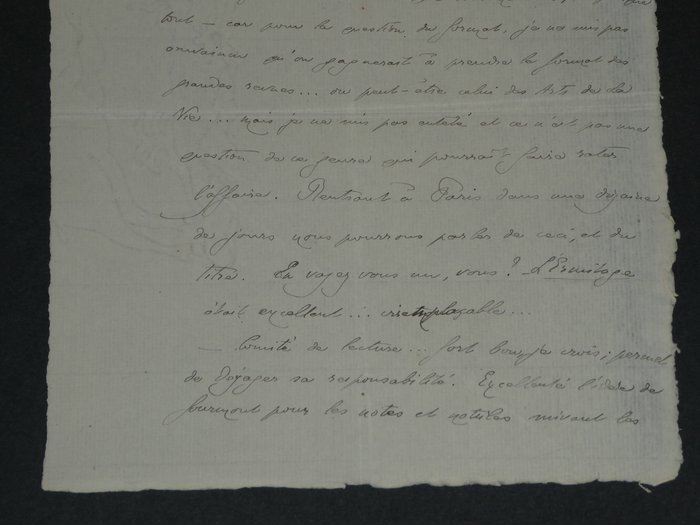 tout – car pour la question du format, je ne suis pas
convaincu qu'on gagnerait à prendre le format des
grandes revues... ou peut-être celui des Arts de la
Vie... mais je ne suis pas entêté et ce n'est pas une
question de ce genre qui pourrait faire rater
l'affaire. Rentrant à Paris dans une dizaine
de jours nous pourrons parler de ceci, et du
titre. En voyez vous un, vous? L'Ermitage
était excellent... irremplaçable...
Comité de lecture... fort bon, je crois; permet
de dégager sa responsabilité. Excellente l'idée de
Gourmont pour les notes et notules suivant les